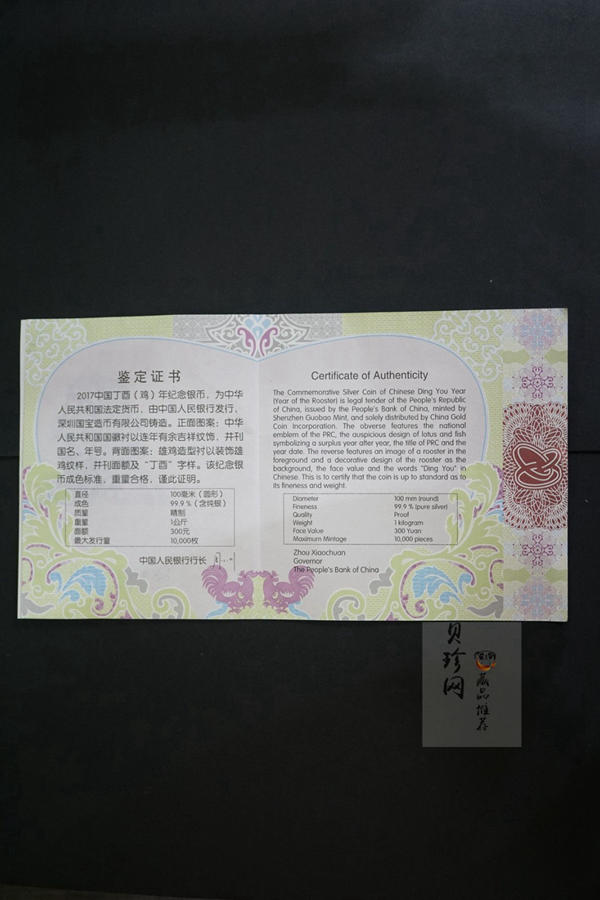 鉴定证书
2017中国丁酉（鸡）年纪念银币，为中华
人民共和国法定货币，由中国人民银行发行，
深圳国宝造币有限公司铸造。正面图案：中华
人民共和国国徽衬以连年有余吉祥纹饰，并刊
国名、年号。背面图案：雄鸡造型衬以装饰雄
鸡纹样，并刊面额及“丁酉”字样。该纪念银
币成色标准，重量合格，谨此证明。
直径 100毫米（圆形）
成色 99.9％（含纯银）
质量 精制
重量 1公斤
面额 300元
最大发行量 10,000枚
中国人民银行行长
Certificate of Authenticity
The Commemorative Silver Coin of Chinese Ding You Year
(Year of the Rooster) is legal tender of the People's Republic
of China, issued by the People's Bank of China, minted by
Shenzhen Guobao Mint, and solely distributed by China Gold
Coin Incorporation. The obverse features the national
emblem of the PRC, the auspicious design of lotus and fish
symbolizing a surplus year after year, the title of PRC and the
year date. The reverse features an image of a rooster in the
foreground and a decorative design of the rooster as the
background, the face value and the words "Ding You" in
Chinese. This is to certify that the coin is up to standard as to
its fineness and weight.
Diameter 100 mm (round)
Fineness 99.9 % (pure silver)
Quality Proof
Weight 1 kilogram
Face Value 300 Yuan
Maximum Mintage 10,000 pieces
Zhou Xiaochuan
Governor
The People's Bank of China
贝珍网
藏品推荐